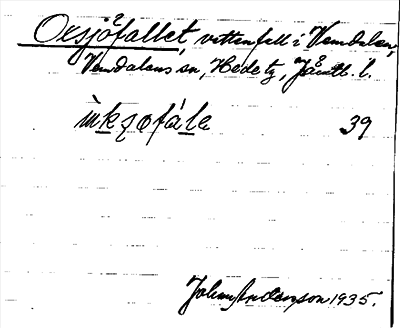 Oxsjöfallet, vattenfall i Vemdalen,
Vemdalens sn, Hede tg, Jämtl. l.
ùksǫfále 39
Johan Anderson 1935.